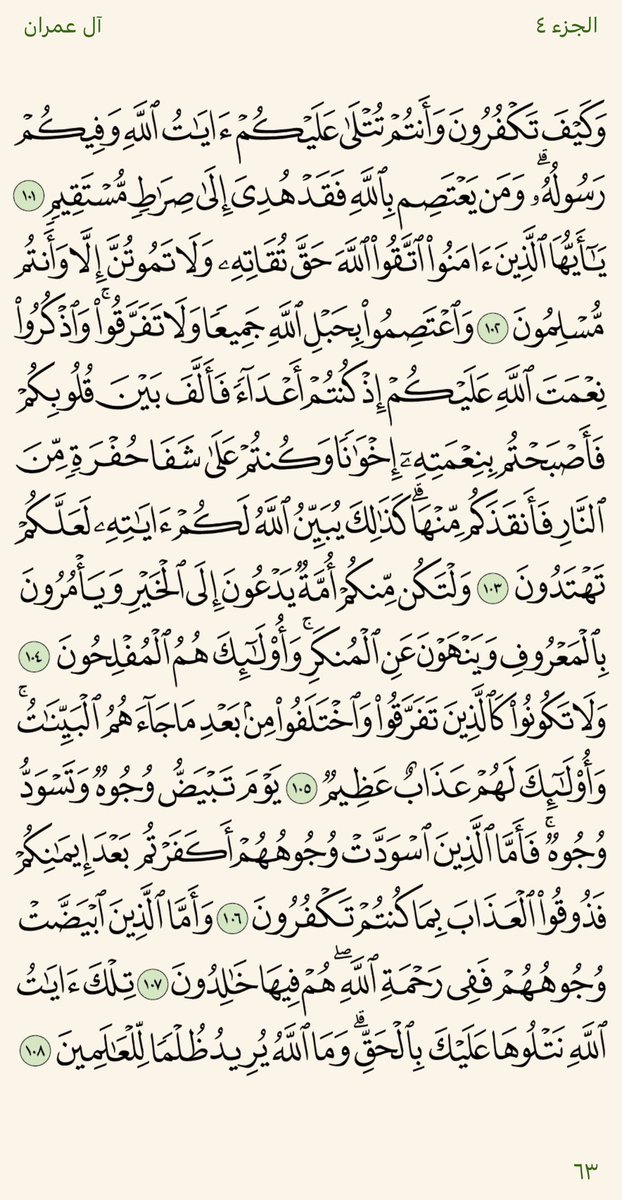 الجزء ٤
آل عمران
وَكَيْفَ تَكْفُرُونَ وَأَنتُمْ تُتْلَىٰ عَلَيْكُمْ ءَايَـٰتُ ٱللَّهِ وَفِيكُمْ
رَسُولُهُۥ ۗ وَمَن يَعْتَصِم بِٱللَّهِ فَقَدْ هُدِىَ إِلَىٰ صِرَٰطٍ مُّسْتَقِيمٍ ١٠١
يَـٰٓأَيُّهَا ٱلَّذِينَ ءَامَنُوا۟ ٱتَّقُوا۟ ٱللَّهَ حَقَّ تُقَاتِهِۦ وَلَا تَمُوتُنَّ إِلَّا وَأَنتُم
مُّسْلِمُونَ ١٠٢ وَٱعْتَصِمُوا۟ بِحَبْلِ ٱللَّهِ جَمِيعًا وَلَا تَفَرَّقُوا۟ ۚ وَٱذْكُرُوا۟
نِعْمَتَ ٱللَّهِ عَلَيْكُمْ إِذْ كُنتُمْ أَعْدَآءً فَأَلَّفَ بَيْنَ قُلُوبِكُمْ
فَأَصْبَحْتُم بِنِعْمَتِهِۦٓ إِخْوَٰنًا وَكُنتُمْ عَلَىٰ شَفَا حُفْرَةٍ مِّنَ
ٱلنَّارِ فَأَنقَذَكُم مِّنْهَا ۗ كَذَٰلِكَ يُبَيِّنُ ٱللَّهُ لَكُمْ ءَايَـٰتِهِۦ لَعَلَّكُمْ
تَهْتَدُونَ ١٠٣ وَلْتَكُن مِّنكُمْ أُمَّةٌ يَدْعُونَ إِلَى ٱلْخَيْرِ وَيَأْمُرُونَ
بِٱلْمَعْرُوفِ وَيَنْهَوْنَ عَنِ ٱلْمُنكَرِ ۚ وَأُو۟لَـٰٓئِكَ هُمُ ٱلْمُفْلِحُونَ ١٠٤
وَلَا تَكُونُوا۟ كَٱلَّذِينَ تَفَرَّقُوا۟ وَٱخْتَلَفُوا۟ مِنۢ بَعْدِ مَا جَآءَهُمُ ٱلْبَيِّنَـٰتُ ۚ
وَأُو۟لَـٰٓئِكَ لَهُمْ عَذَابٌ عَظِيمٌ ١٠٥ يَوْمَ تَبْيَضُّ وُجُوهٌ وَتَسْوَدُّ
وُجُوهٌ ۚ فَأَمَّا ٱلَّذِينَ ٱسْوَدَّتْ وُجُوهُهُمْ أَكَفَرْتُم بَعْدَ إِيمَـٰنِكُمْ
فَذُوقُوا۟ ٱلْعَذَابَ بِمَا كُنتُمْ تَكْفُرُونَ ١٠٦ وَأَمَّا ٱلَّذِينَ ٱبْيَضَّتْ
وُجُوهُهُمْ فَفِى رَحْمَةِ ٱللَّهِ ۖ هُمْ فِيهَا خَـٰلِدُونَ ١٠٧ تِلْكَ ءَايَـٰتُ
ٱللَّهِ نَتْلُوهَا عَلَيْكَ بِٱلْحَقِّ ۗ وَمَا ٱللَّهُ يُرِيدُ ظُلْمًا لِّلْعَـٰلَمِينَ ١٠٨
٦٣